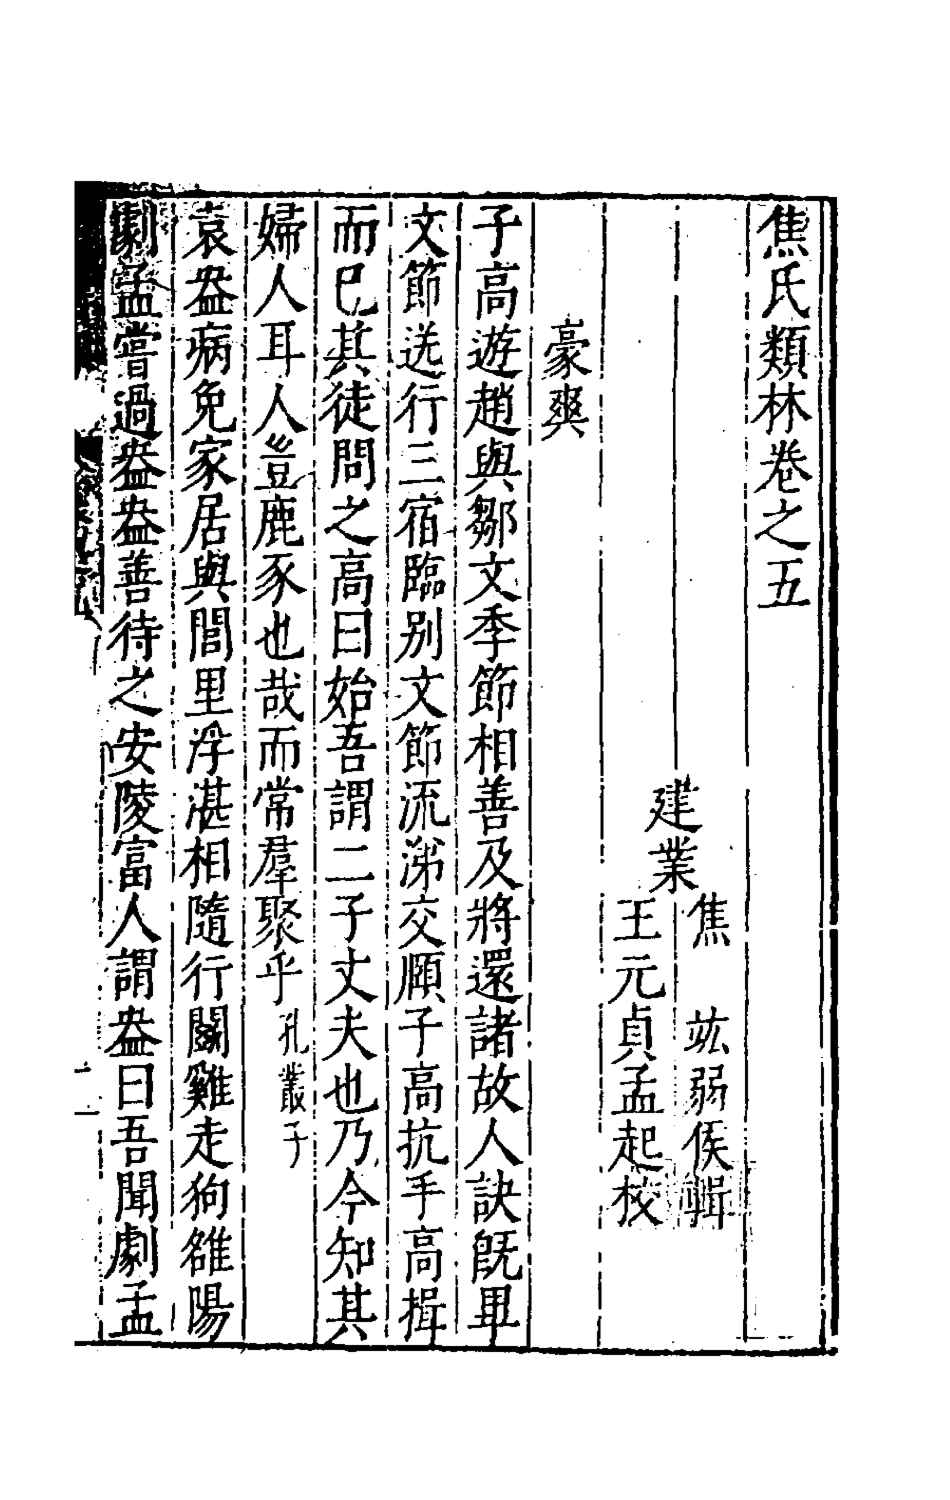 焦氏類林卷之五
建業
焦　竑弱侯輯
王元貞孟起校
豪爽
子高遊趙與鄒文季節相善及將還諸故人訣既畢
文節送行三宿臨别文節流涕交頤子高抗手高揖
而已其徒問之高曰始吾謂二子丈夫也乃今知其
婦人耳人豈鹿豕也哉而常羣聚乎孔叢子
袁盎病免家居與閭里浮湛相隨行鬬雞走狗雒陽
劇孟嘗過盎盎善待之安陵富人謂盎曰吾聞劇孟
一